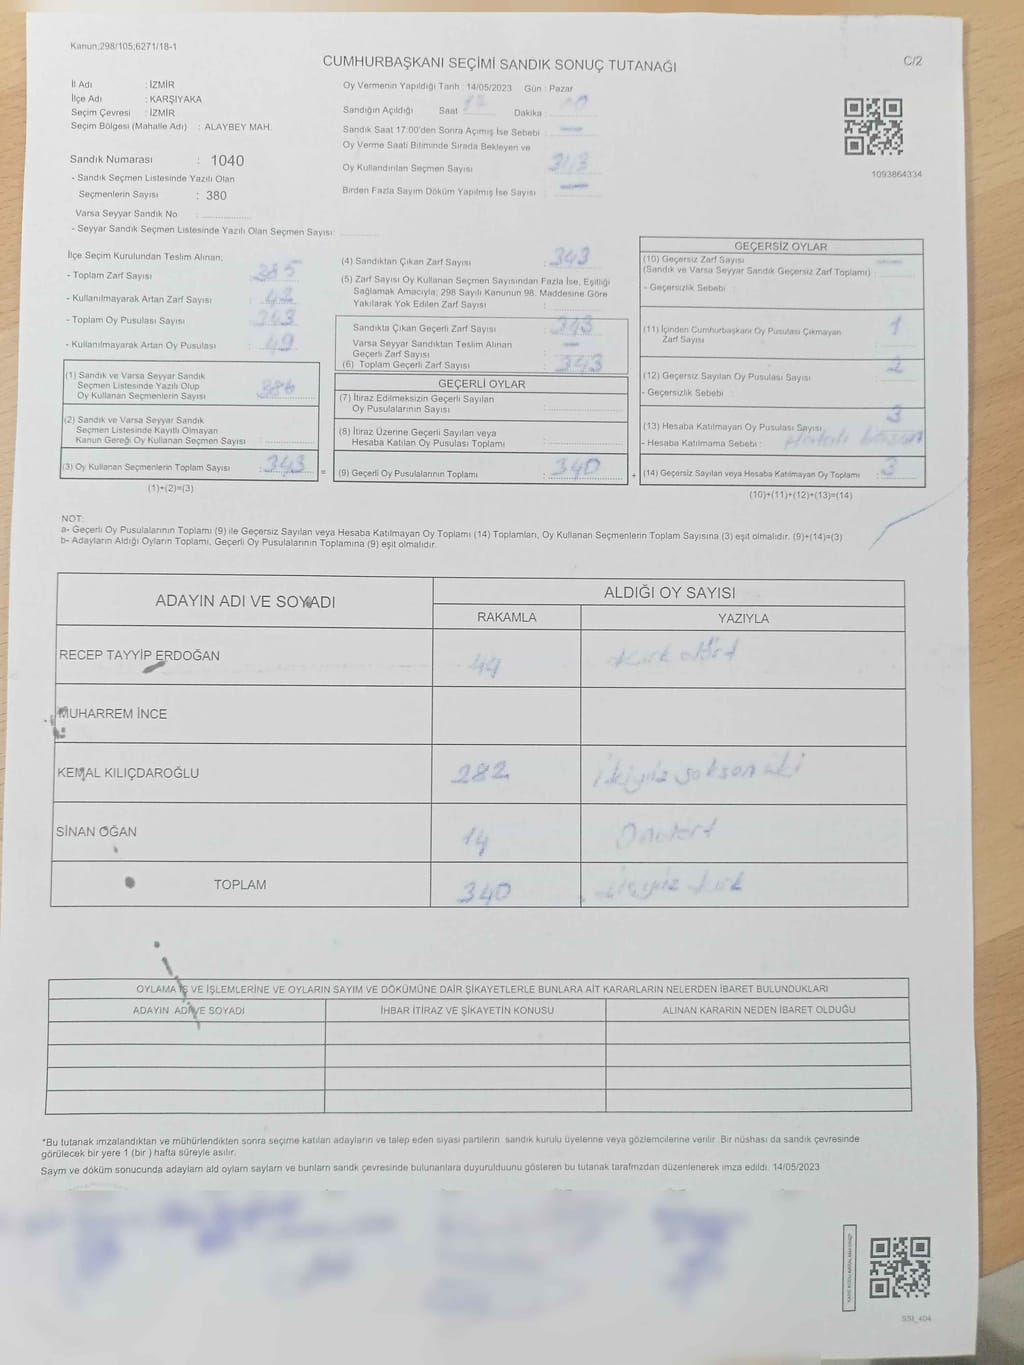 Kanun;298/105;6271/18-1
CUMHURBAŞKANI SEÇİMİ SANDIK SONUÇ TUTANAĞI
C/2
İl Adı : İZMİR
İlçe Adı : KARŞIYAKA
Seçim Çevresi : İZMİR
Seçim Bölgesi (Mahalle Adı) : ALAYBEY MAH.
Sandık Numarası : 1040
- Sandık Seçmen Listesinde Yazılı Olan
Seçmenlerin Sayısı : 380
Varsa Seyyar Sandık No :
- Seyyar Sandık Seçmen Listesinde Yazılı Olan Seçmen Sayısı:
Oy Vermenin Yapıldığı Tarih : 14/05/2023 Gün : Pazar
Sandığın Açıldığı Saat 17 Dakika : 00
Sandık Saat 17:00'den Sonra Açımış İse Sebebi : —
Oy Verme Saati Bitiminde Sırada Bekleyen ve
Oy Kullandırılan Seçmen Sayısı :
Birden Fazla Sayım Döküm Yapılmış İse Sayısı : —
1093864334
İlçe Seçim Kurulundan Teslim Alınan;
- Toplam Zarf Sayısı : 385
- Kullanılmayarak Artan Zarf Sayısı : 42
- Toplam Oy Pusulası Sayısı : 343
- Kullanılmayarak Artan Oy Pusulası : 49
(1) Sandık ve Varsa Seyyar Sandık
Seçmen Listesinde Yazılı Olup
Oy Kullanan Seçmenlerin Sayısı : 386
(2) Sandık ve Varsa Seyyar Sandık
Seçmen Listesinde Kayıtlı Olmayan
Kanun Gereği Oy Kullanan Seçmen Sayısı :
(3) Oy Kullanan Seçmenlerin Toplam Sayısı : 343 =
(1)+(2)=(3)
(4) Sandıktan Çıkan Zarf Sayısı : 343
(5) Zarf Sayısı Oy Kullanan Seçmen Sayısından Fazla İse, Eşitliği
Sağlamak Amacıyla; 298 Sayılı Kanunun 98. Maddesine Göre
Yakılarak Yok Edilen Zarf Sayısı :
Sandıkta Çıkan Geçerli Zarf Sayısı : 343
Varsa Seyyar Sandıktan Teslim Alınan
Geçerli Zarf Sayısı : —
(6) Toplam Geçerli Zarf Sayısı : 343
GEÇERLİ OYLAR
(7) İtiraz Edilmeksizin Geçerli Sayılan
Oy Pusulalarının Sayısı :
(8) İtiraz Üzerine Geçerli Sayılan veya
Hesaba Katılan Oy Pusulası Toplamı :
(9) Geçerli Oy Pusulalarının Toplamı : 340 +
GEÇERSİZ OYLAR
(10) Geçersiz Zarf Sayısı
(Sandık ve Varsa Seyyar Sandık Geçersiz Zarf Toplamı) : —
- Geçersizlik Sebebi :
(11) İçinden Cumhurbaşkanı Oy Pusulası Çıkmayan
Zarf Sayısı : 1
(12) Geçersiz Sayılan Oy Pusulası Sayısı : 2
- Geçersizlik Sebebi :
(13) Hesaba Katılmayan Oy Pusulası Sayısı : 3
- Hesaba Katılmama Sebebi :
(14) Geçersiz Sayılan veya Hesaba Katılmayan Oy Toplamı : 3
(10)+(11)+(12)+(13)=(14)
NOT:
a- Geçerli Oy Pusulalarının Toplamı (9) ile Geçersiz Sayılan veya Hesaba Katılmayan Oy Toplamı (14) Toplamları, Oy Kullanan Seçmenlerin Toplam Sayısına (3) eşit olmalıdır. (9)+(14)=(3)
b- Adayların Aldığı Oyların Toplamı, Geçerli Oy Pusulalarının Toplamına (9) eşit olmalıdır.
ADAYIN ADI VE SOYADI
ALDIĞI OY SAYISI
RAKAMLA YAZIYLA
RECEP TAYYİP ERDOĞAN 44 kırk dört
MUHARREM İNCE
KEMAL KILIÇDAROĞLU 282 ikiyüz seksen iki
SİNAN OĞAN 14 Ondört
TOPLAM 340 üçyüz kırk
OYLAMA İŞ VE İŞLEMLERİNE VE OYLARIN SAYIM VE DÖKÜMÜNE DAİR ŞİKAYETLERLE BUNLARA AİT KARARLARIN NELERDEN İBARET BULUNDUKLARI
ADAYIN ADI VE SOYADI İHBAR İTİRAZ VE ŞİKAYETİN KONUSU ALINAN KARARIN NEDEN İBARET OLDUĞU
*Bu tutanak imzalandıktan ve mühürlendikten sonra seçime katılan adayların ve talep eden siyasi partilerin sandık kurulu üyelerine veya gözlemcilerine verilir. Bir nüshası da sandık çevresinde
görülecek bir yere 1 (bir ) hafta süreyle asılır.
Saym ve döküm sonucunda adaylarn ald oylarn saylarn ve bunlarn sandk çevresinde bulunanlara duyurulduunu gösteren bu tutanak tarafmzdan düzenlenerek imza edildi. 14/05/2023